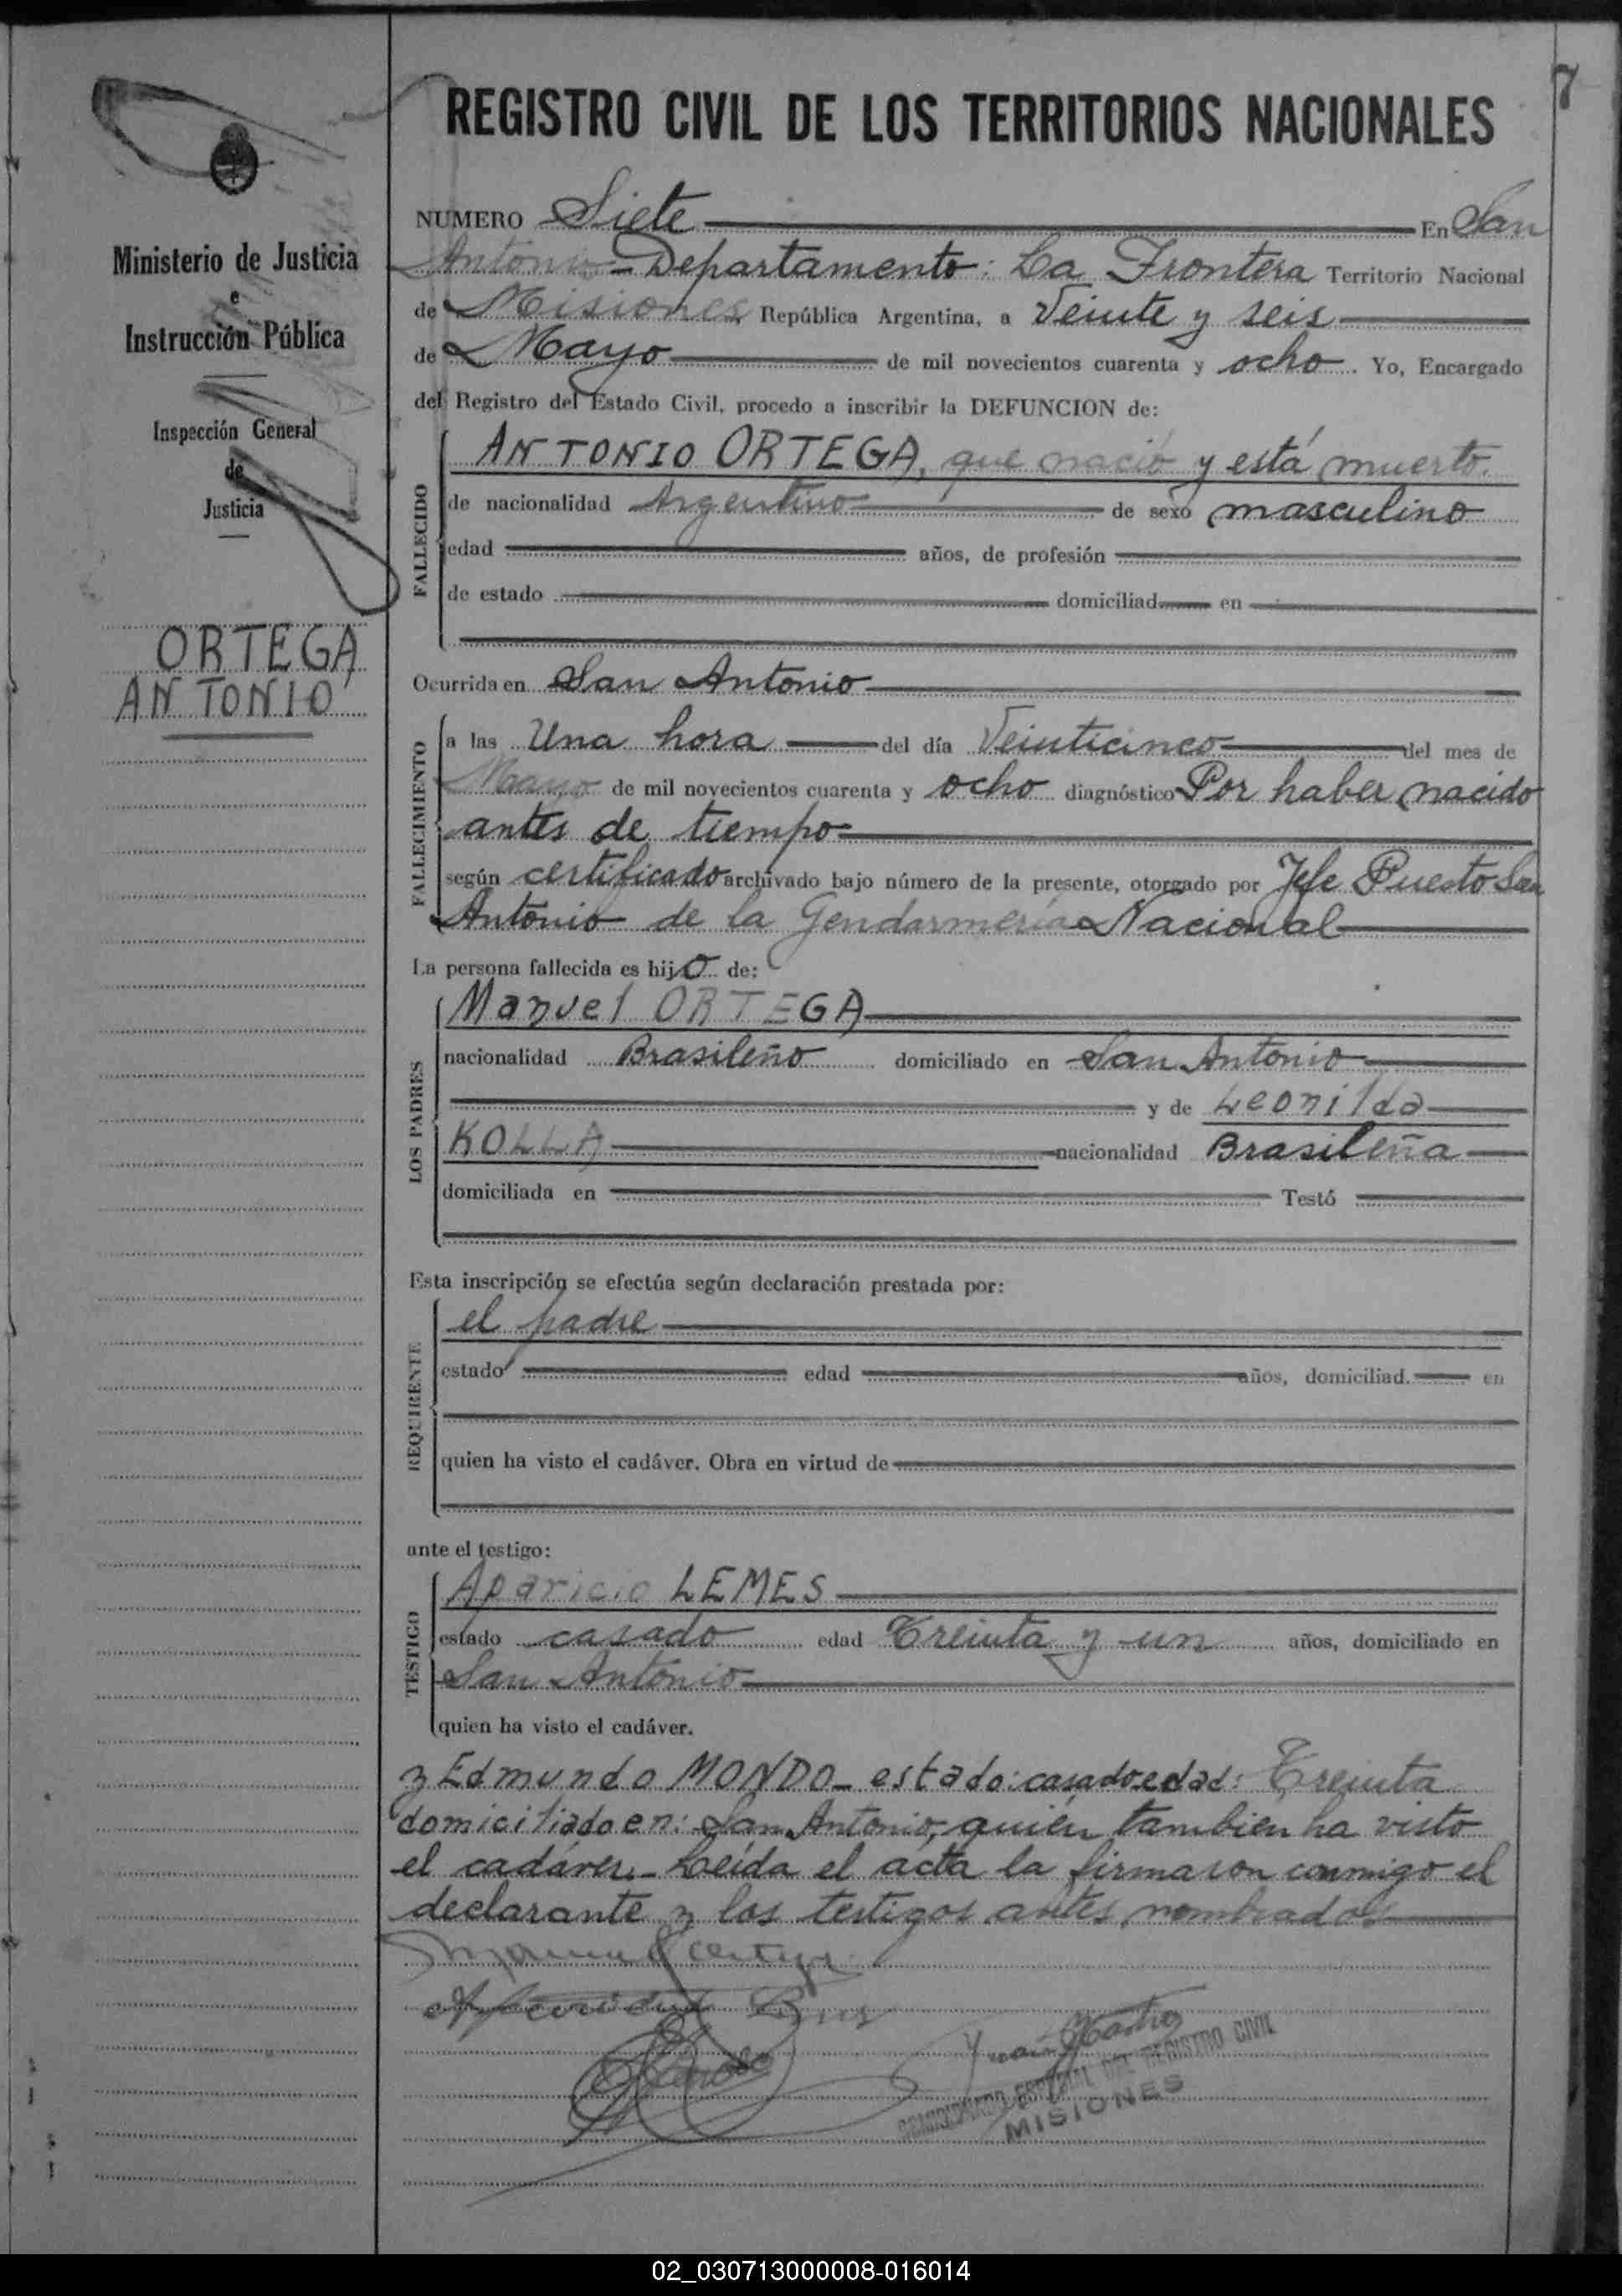 7
REGISTRO CIVIL DE LOS TERRITORIOS NACIONALES
Ministerio de Justicia
e
Instrucción Pública
Inspección General
de
Justicia
ORTEGA
ANTONIO
NUMERO Siete En San
Antonio - Departamento: La Frontera Territorio Nacional
de Misiones República Argentina, a Veinte y seis
de Mayo de mil novecientos cuarenta y ocho. Yo, Encargado
del Registro del Estado Civil, procedo a inscribir la DEFUNCION de:
FALLECIDO
ANTONIO ORTEGA, que nació y está muerto.
de nacionalidad Argentino de sexo masculino
edad años, de profesión
de estado domiciliad en
Ocurrida en San Antonio
FALLECIMIENTO
a las Una hora del día Veinticinco del mes de
Mayo de mil novecientos cuarenta y ocho diagnóstico Por haber nacido
antes de tiempo
según certificado archivado bajo número de la presente, otorgado por Jefe Puesto San
Antonio de la Gendarmería Nacional
La persona fallecida es hijo de:
LOS PADRES
Manuel ORTEGA
nacionalidad Brasileño domiciliado en San Antonio
y de Leonilda
KOLLA nacionalidad Brasileña
domiciliada en Testó
Esta inscripción se efectúa según declaración prestada por:
REQUIRENTE
el padre
estado edad años, domiciliad. en
quien ha visto el cadáver. Obra en virtud de
ante el testigo:
TESTIGO
Aparicio LEMES
estado casado edad Treinta y un años, domiciliado en
San Antonio
quien ha visto el cadáver.
y Edmundo MONDO - estado: casado edad: Treinta
domiciliado en: San Antonio, quién también ha visto
el cadáver. - Leída el acta la firmaron conmigo el
declarante y los testigos antes nombrados
DEL REGISTRO CIVIL
MISIONES
02_030713000008-016014